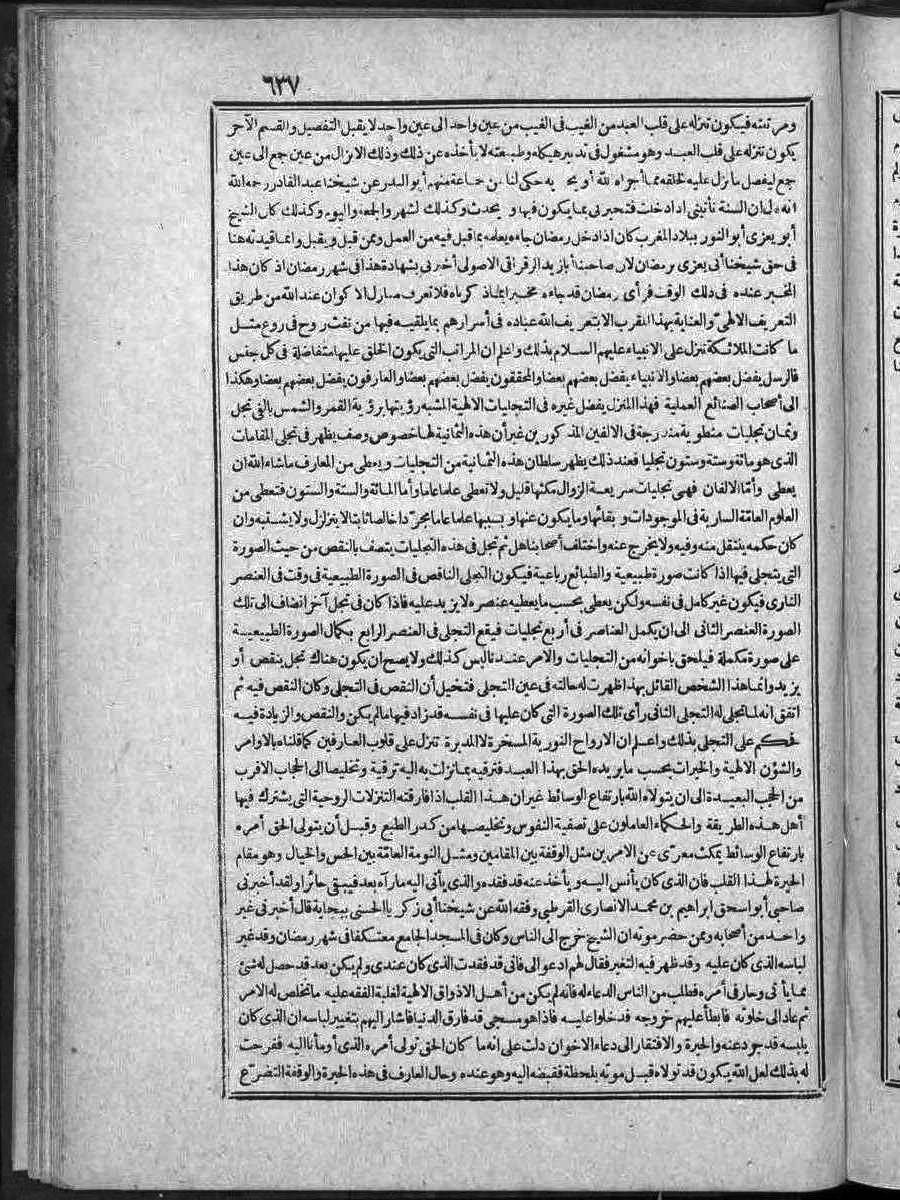 ٦٣٧
ومرتبته فيكون تنزله على قلب العبد من الغيب فى الغيب من عين واحد الى عين واحد لا يقبل التفصيل والقسم الآخر
يكون تنزله على قلب العبد وهو مشغول فى تدبير هيكله وطبيعته لا يأخذه عن ذلك وذلك الانزال من عين جمع الى عين
جمع ليفصل ما نزل عليه لخلقه مما أجراه الله أو يجريه حكى لنا من جماعة منهم أبو البدر عن شيخنا عبد القادر رحمه الله
انه قال ان السنة تأتينى اذا دخلت فتخبرنى بما يكون فيها ويحدث وكذلك الشهر والجمعة واليوم وكذلك كان الشيخ
أبو يعزى أبو النور ببلاد المغرب كان اذا دخل رمضان جاءه يعلمه بما قبل فيه من العمل وممن قبل ويقبل وانما قيدته هنا
فى حق شيخنا أبى يعزى برمضان لان صاحبنا أبا زيد الرقراقى الاصولى أخبرنى بشهادة هذا فى شهر رمضان اذ كان هذا
المخبر عنده فى ذلك الوقت فرأى رمضان قد جاءه مخبرا بما ذكرناه فلا تعرف منازل الاكوان عند الله من طريق
التعريف الالهى والعناية بهذا المقرب الا بتعريف الله عباده فى أسرارهم بما يلقيه فيها من نفث روح فى روع مثل
ما كانت الملائكة تنزل على الانبياء عليهم السلام بذلك واعلم ان المراتب التى يكون الخلق عليها متفاضلة فى كل جنس
فالرسل يفضل بعضهم بعضا والانبياء يفضل بعضهم بعضا والمحققون يفضل بعضهم بعضا والعارفون يفضل بعضهم بعضا وهكذا
الى أصحاب الصنائع العملية فهذا المنزل يفضل غيره فى التجليات الالهية المشبه رؤيتها برؤية القمر والشمس بالفى تجل
وثمان تجليات منطوية مندرجة فى الالفين المذكورين غير أن هذه الثمانية لها خصوص وصف يظهر فى تجلى المقامات
الذى هو مائة وستة وستون تجليا فعند ذلك يظهر سلطان هذه الثمانية من التجليات ويعطى من المعارف ما شاء الله ان
يعطى وأما الالفان فهى تجليات سريعة الزوال مكثها قليل ولا تعطى علما عاما وأما المائة والستة والستون فتعطى من
العلوم العامة السارية فى الموجودات وبقائها وما يكون عنها وبسببها علما عاما مجردا خالصا ثابتا لا يتزلزل ولا يشتبه وان
كان حكمه ينتقل منه وفيه ولا يخرج عنه واختلف أصحابنا هل ثم تجل فى هذه التجليات يتصف بالنقص من حيث الصورة
التى يتجلى فيها اذا كانت صورة طبيعية والطبائع رباعية فيكون التجلى الناقص فى الصورة الطبيعية فى وقت فى العنصر
النارى فيكون غير كامل فى نفسه ولكن يعطى بحسب ما يعطيه عنصره لا يزيد عليه فاذا كان فى تجل آخر انضاف الى تلك
الصورة العنصر الثانى الى ان يكمل العناصر فى أربع تجليات فيقع التجلى فى العنصر الرابع بكمال الصورة الطبيعية
على صورة مكملة فيلحق باخوانه من التجليات والامر عندنا ليس كذلك ولا يصح ان يكون هناك تجل ينقص أو
يزيد وانما هذا الشخص القائل بهذا ظهرت له حالته فى عين التجلى فتخيل أن النقص فى التجلى وكان النقص فيه ثم
اتفق انه لما تجلى له التجلى الثانى رأى تلك الصورة التى كان عليها فى نفسه قد زاد فيها ما لم يكن والنقص والزيادة فيه
فحكم على التجلى بذلك واعلم ان الارواح النورية المسخرة لا المدبرة تنزل على قلوب العارفين كما قلناه بالاوامر
والشؤن الالهية والخيرات بحسب ما يريده الحق بهذا العبد فترقيه بما نزلت به اليه ترقية وتخليصا الى الحجاب الاقرب
من الحجب البعيدة الى ان يتولاه الله بارتفاع الوسائط غير ان هذا القلب اذا فارقته التنزلات الروحية التى يشترك فيها
أهل هذه الطريقة والحكماء العاملون على تصفية النفوس وتخليصها من كدر الطبع وقبل أن يتولى الحق أمره
بارتفاع الوسائط يمكث معرى عن الامرين مثل الوقفة بين المقامين ومثل النومة العامة بين الحس والخيال وهو مقام
الحيرة لهذا القلب فان الذى كان يأنس اليه ويأخذ عنه قد فقده والذى يأتى اليه ما رآه بعد فيبقى حائرا ولقد أخبرنى
صاحبى أبو اسحق ابراهيم بن محمد الانصارى القرطبى وفقه الله عن شيخنا أبى زكريا الحسنى ببجاية قال أخبرنى غير
واحد من أصحابه وممن حضر موته ان الشيخ خرج الى الناس وكان فى المسجد الجامع معتكفا فى شهر رمضان وقد غير
لباسه الذى كان عليه وقد ظهر فيه التغير فقال لهم ادعوا لى فانى قد فقدت الذى كان عندى ولم يكن بعد قد حصل له شئ
مما يأتى وحار فى أمره فطلب من الناس الدعاء له فانه لم يكن من أهل الاذواق الالهية لغلبة الفقه عليه ما تخلص له الامر
ثم عاد الى خلوته فابطأ عليهم خروجه فدخلوا عليه فاذا هو مسجى قد فارق الدنيا فاشار اليهم بتغيير لباسه ان الذى كان
يلبسه قد جرد عنه والحيرة والافتقار الى دعاء الاخوان دلت على انه ما كان الحق تولى أمره الذى أومأنا اليه ففرحت
له بذلك لعل الله يكون قد تولاه قبل موته بلحظة فقبضه اليه وهو عنده وحال العارف فى هذه الحيرة والوقفة التضرع